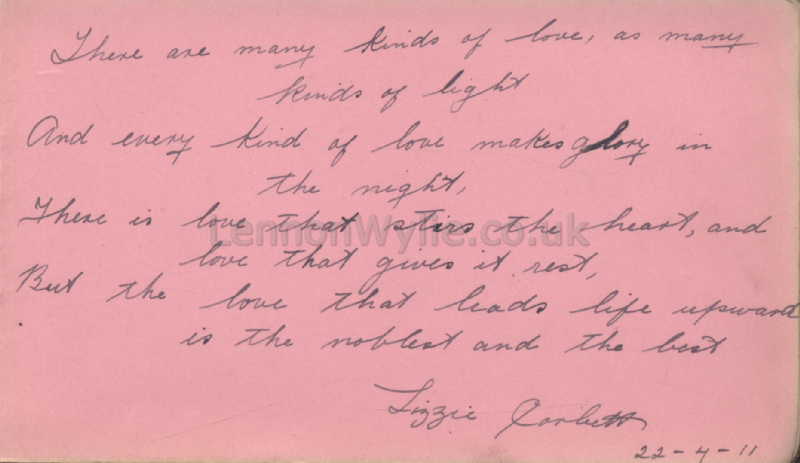 There are many kinds of love, as many
kinds of light
And every kind of love makes glory in
the night,
There is love that stirs the heart, and
love that gives it rest,
But the love that leads life upward
is the noblest and the best
Lizzie Corbett
22-4-11
LennonWylie.co.uk